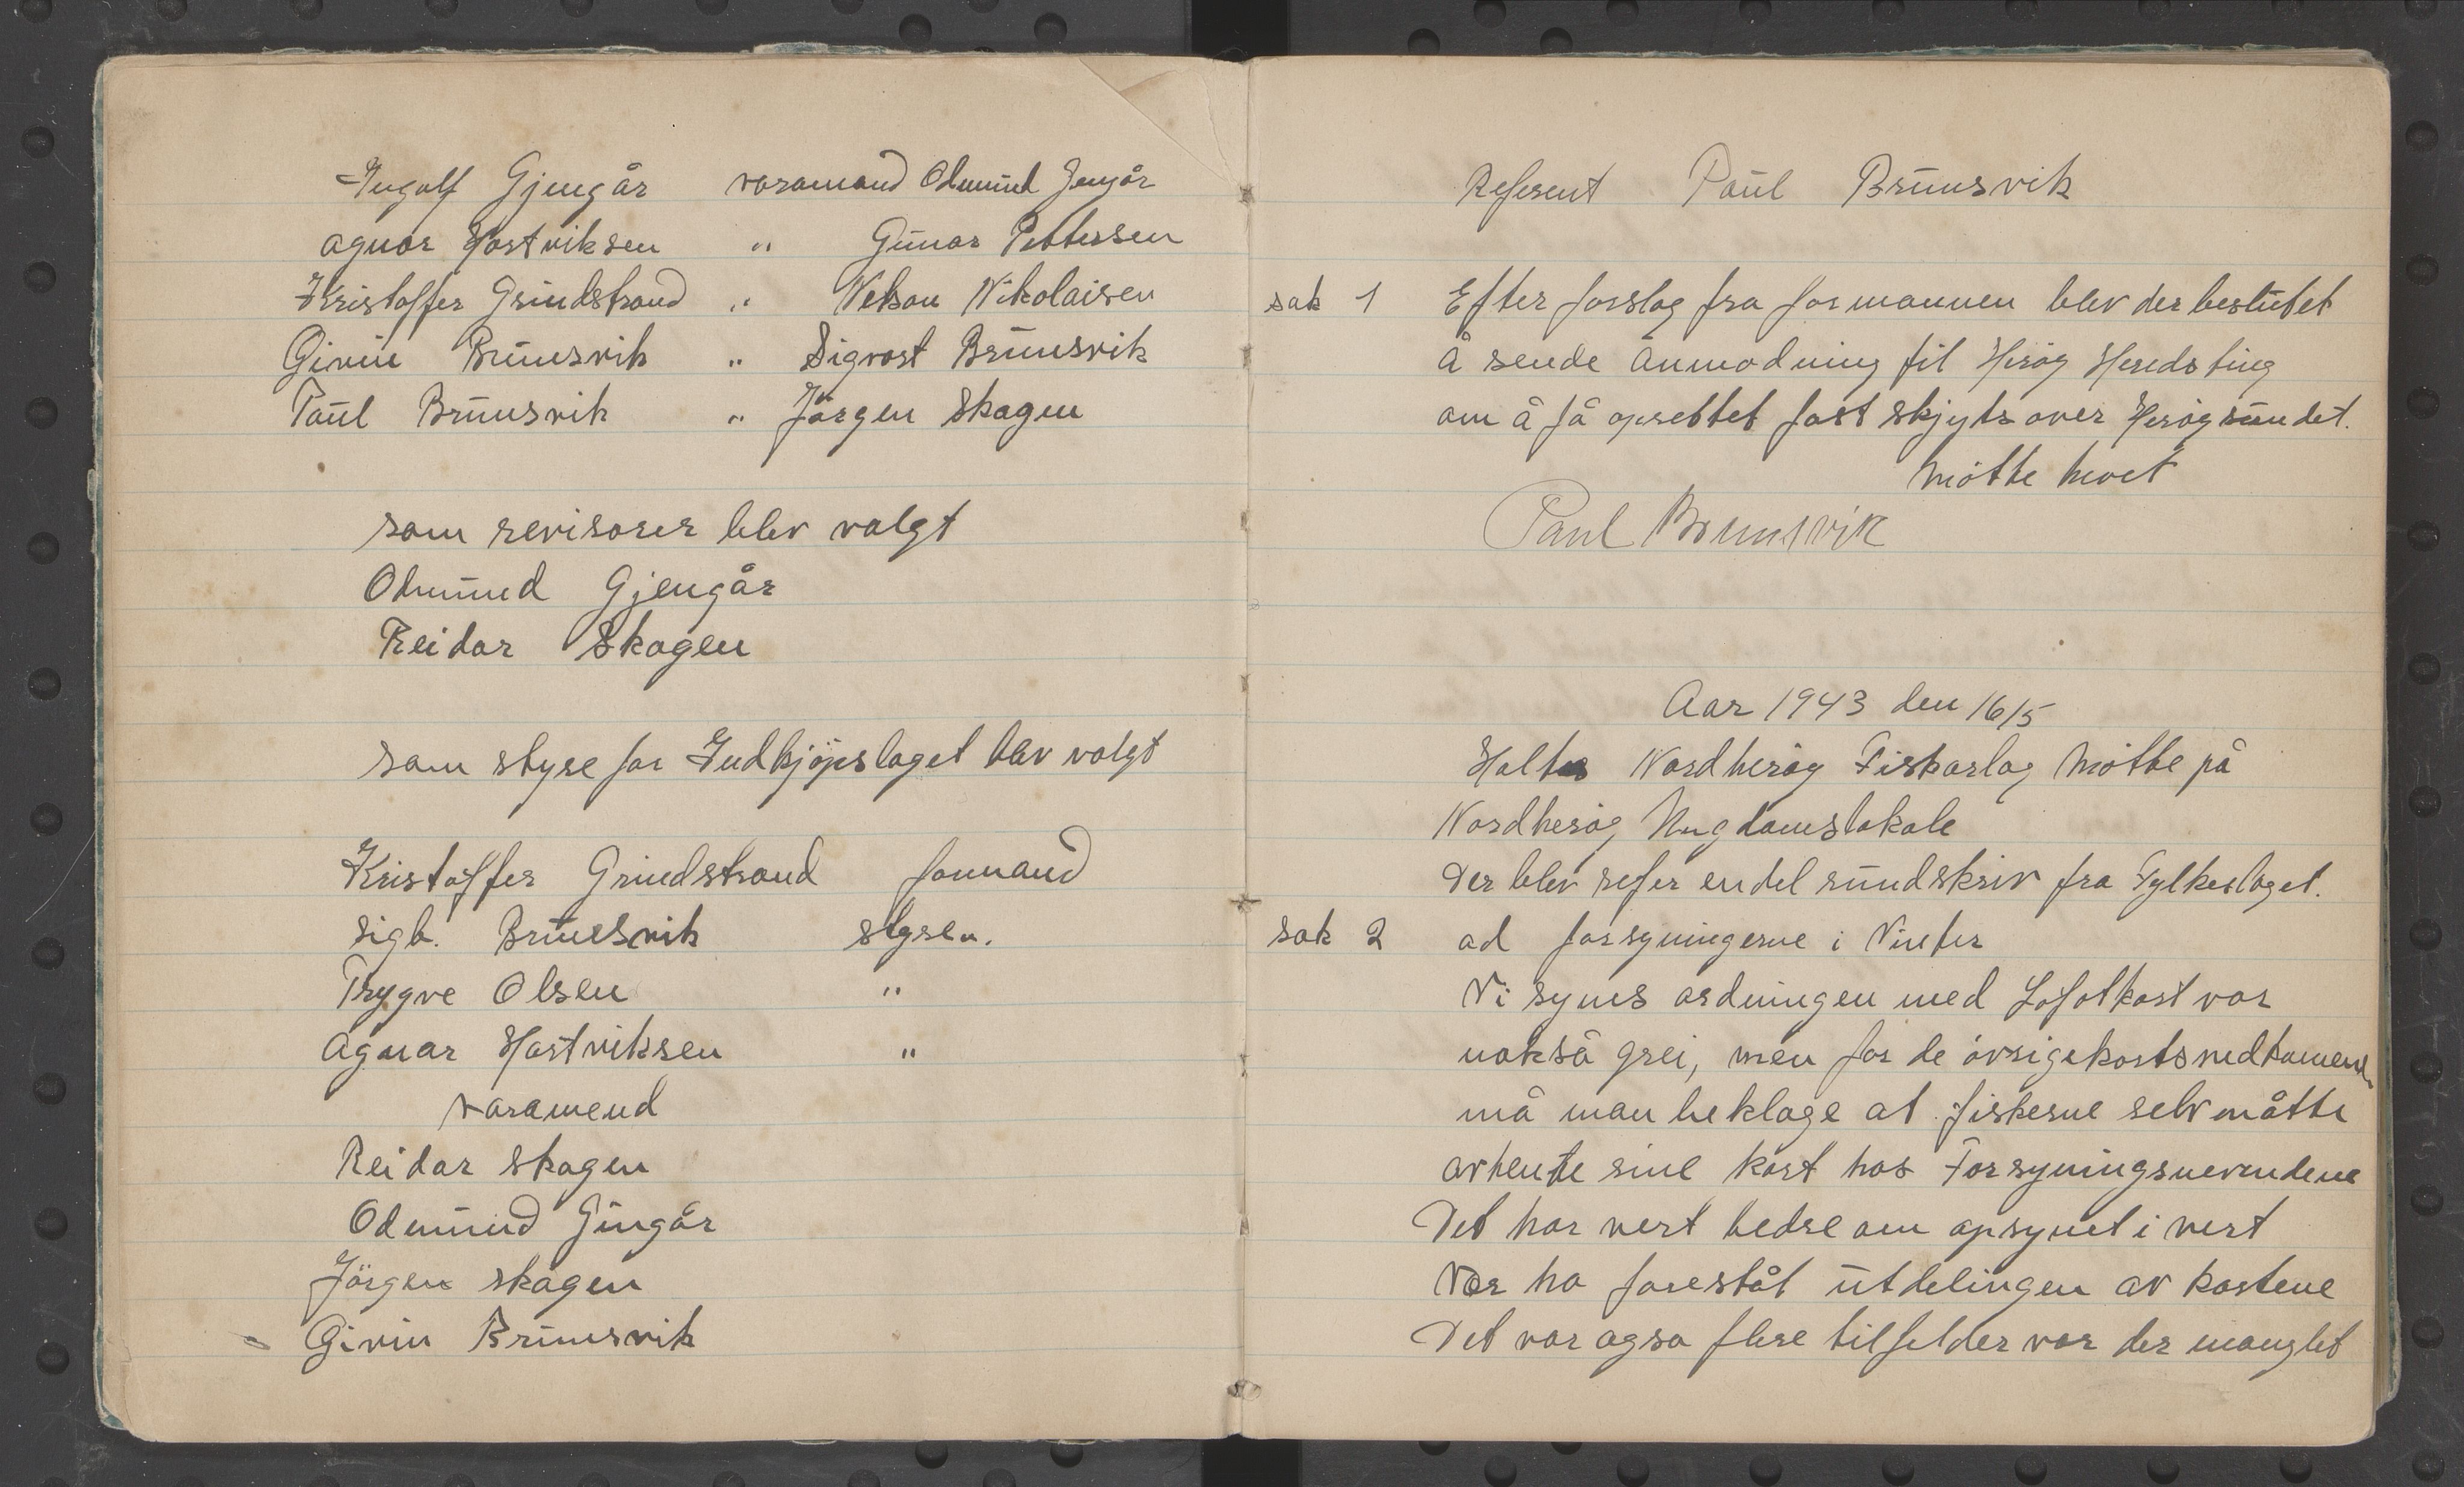 Ingolf Gjengår varamand Odmund Jengår
Agnar Hostviksen " Gunar Pettersen
Kristoffer Grindstrand " Nelson Nikolaisen
Givin Brunsvik " Sigvart Brunsvik
Paul Brunsvik " Jörgen Skagen
som revisorer blev valgt
Odmund Gjengår
Reidar Skagen
som styre for Indkjöpslaget blev valgt
Kristoffer Grindstrand formand
Sigb. Brunsvik styrem.
Trygve Olsen "
Agnar Hostviksen "
varamend
Reidar Skagen
Odemund Gingår
Jörgen Skagen
Givin Brunsvik
Referent Paul Brunsvik
sak 1 Efter forslag fra formannen blev der beslutet
å sende Anmodning til Heröy Heredsting
om å få opsettet fast skjyts over Heröysundet.
Mötte hevet
Paul Brunsvik
Aar 1943 den 16/5
Holtes Nordheröy Fiskarlag Mötte på
Nordheröy Ungdomslokale
Der blev refer endel rundskriv fra Fylkeslaget.
sak 2 ad forsyningerne i Vinter
Vi synes ordningen med Lofotkost var
nokså grei, men for de övrige kostsvedkomende
må man beklage at fiskerne selv måtte
avhente sine kort hos Forsyningsnevndene
Det har vert bedre om opsynet i vert
Vær ha foreståt utdelingen av kortene
Det var ogso flere tilfelder vor der manglet